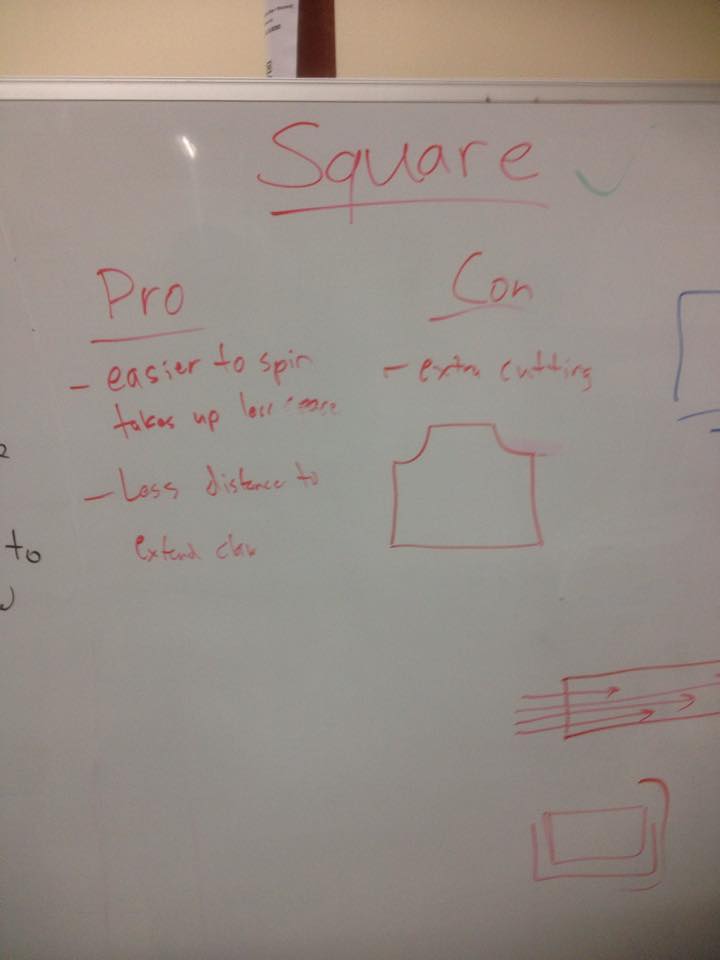 Square
Pro
Con
- easier to spin
takes up less space
- Less distance to
extend claw
- extra cutting
to